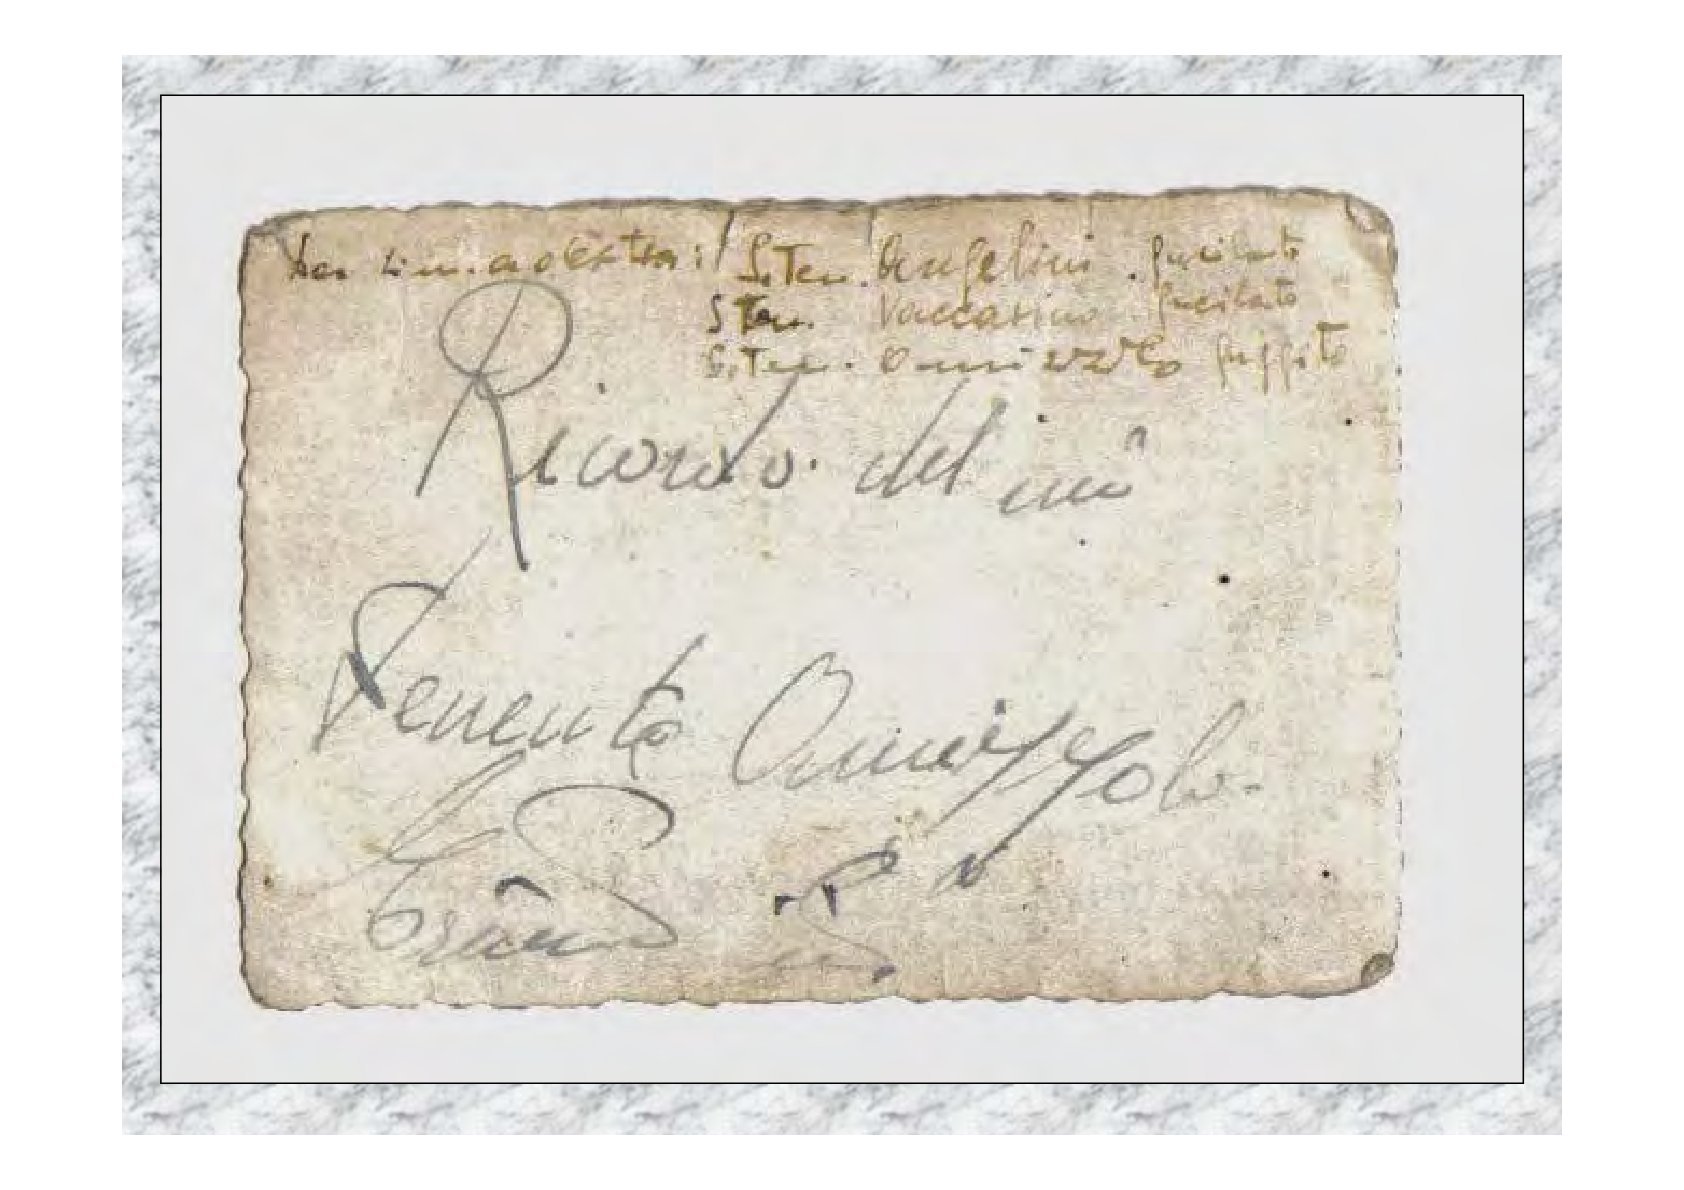 da sin. a destra: S.Ten. Angelini. fucilato
S Ten. Vaccarino fucilato
S.Ten. Omizzolo fuggito
Ricordo del
Tenente Omizzolo.